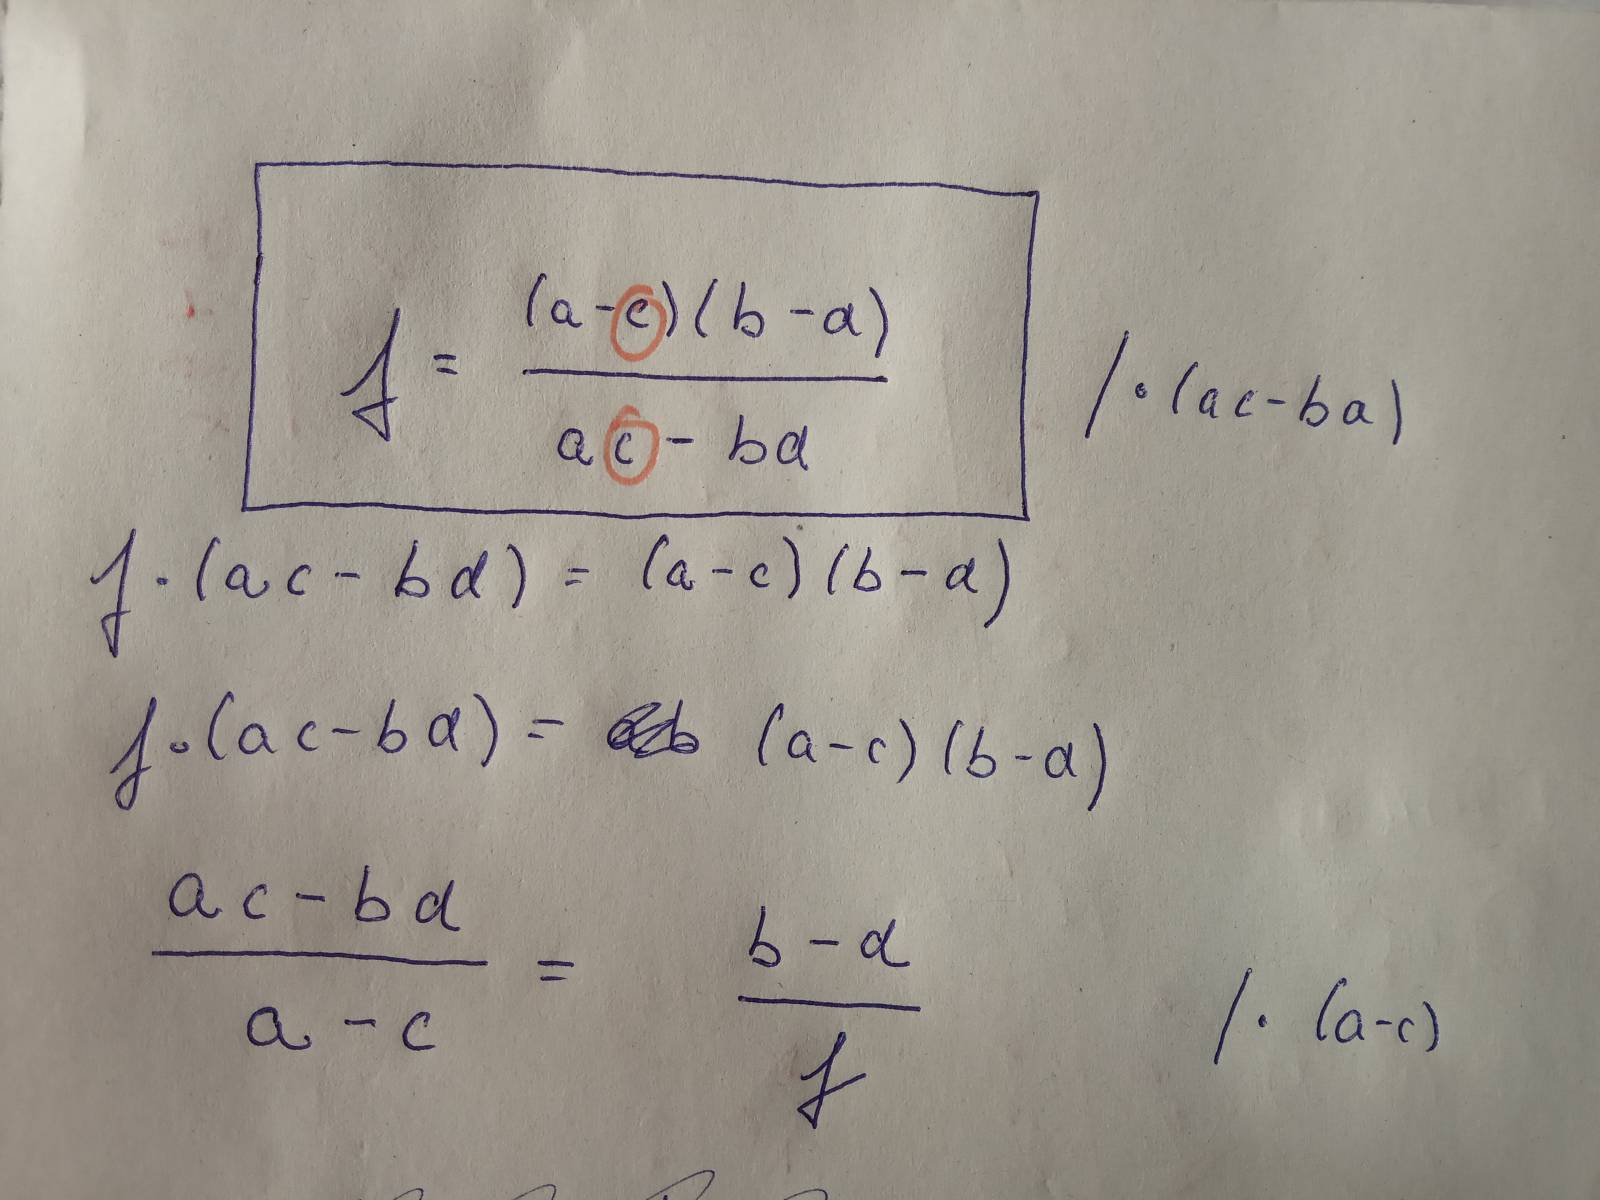 f = (a-c)(b-d) / ac - bd   / · (ac-bd)
f · (ac - bd) = (a-c)(b-d)
f · (ac-bd) = (a-c)(b-d)
ac-bd / a-c = b-d / f   / · (a-c)